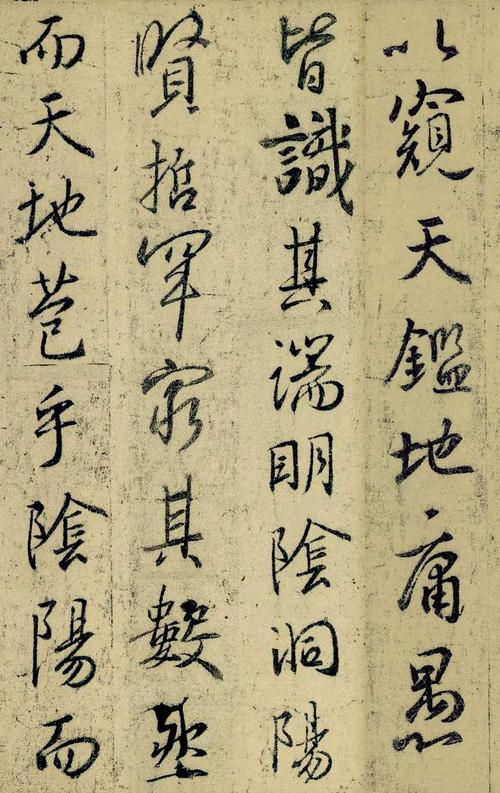 以窺天鑑地庸愚
皆識其端明陰洞陽
賢哲罕窮其數然
而天地苞乎陰陽而